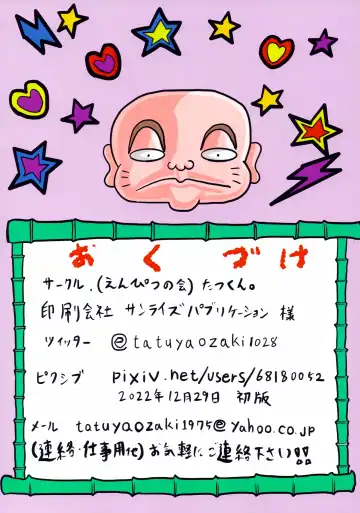 おくづけ
サークル.(えんぴつの会)たつくん。
印刷会社 サンライズパブリケーション 様
ツイッター @tatuyaozaki1028
ピクシブ pixiv.net/users/68180052
2022年12月29日 初版
メール tatuyaozaki1975@yahoo.co.jp
(連絡・仕事用他)お気軽にご連絡下さい